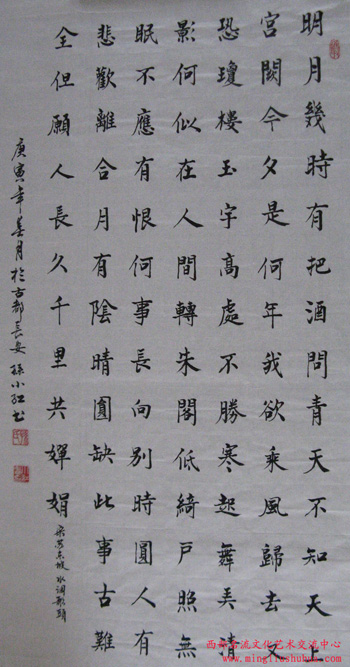 明月幾時有把酒問青天不知天上
宮闕今夕是何年我欲乘風歸去又
恐瓊樓玉宇高處不勝寒起舞弄清
影何似在人間轉朱閣低綺戶照無
眠不應有恨何事長向別時圓人有
悲歡離合月有陰晴圓缺此事古難
全但願人長久千里共嬋娟
宋蘇東坡水調歌頭
庚寅年春月於古都長安孫小紅書
西部名流文化艺术交流中心
www.mingliushuhua.com